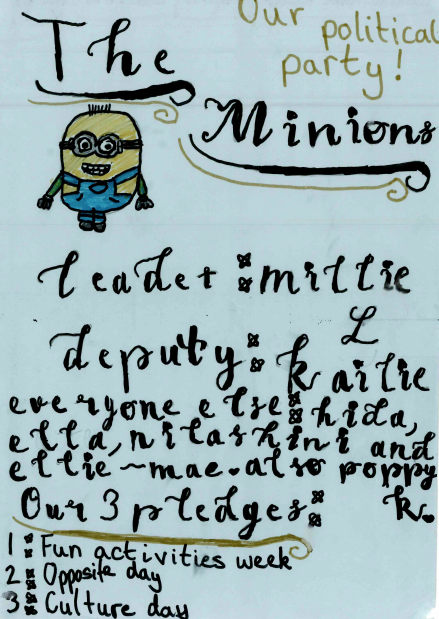 Our political
party!
The
Minions
leader : millie
L
deputy : kailie
everyone else : hida,
ella, nilashini and
ellie-mae. also poppy
k.
Our 3 pledges:
1 : Fun activities week
2 : Opposite day
3 : Culture day